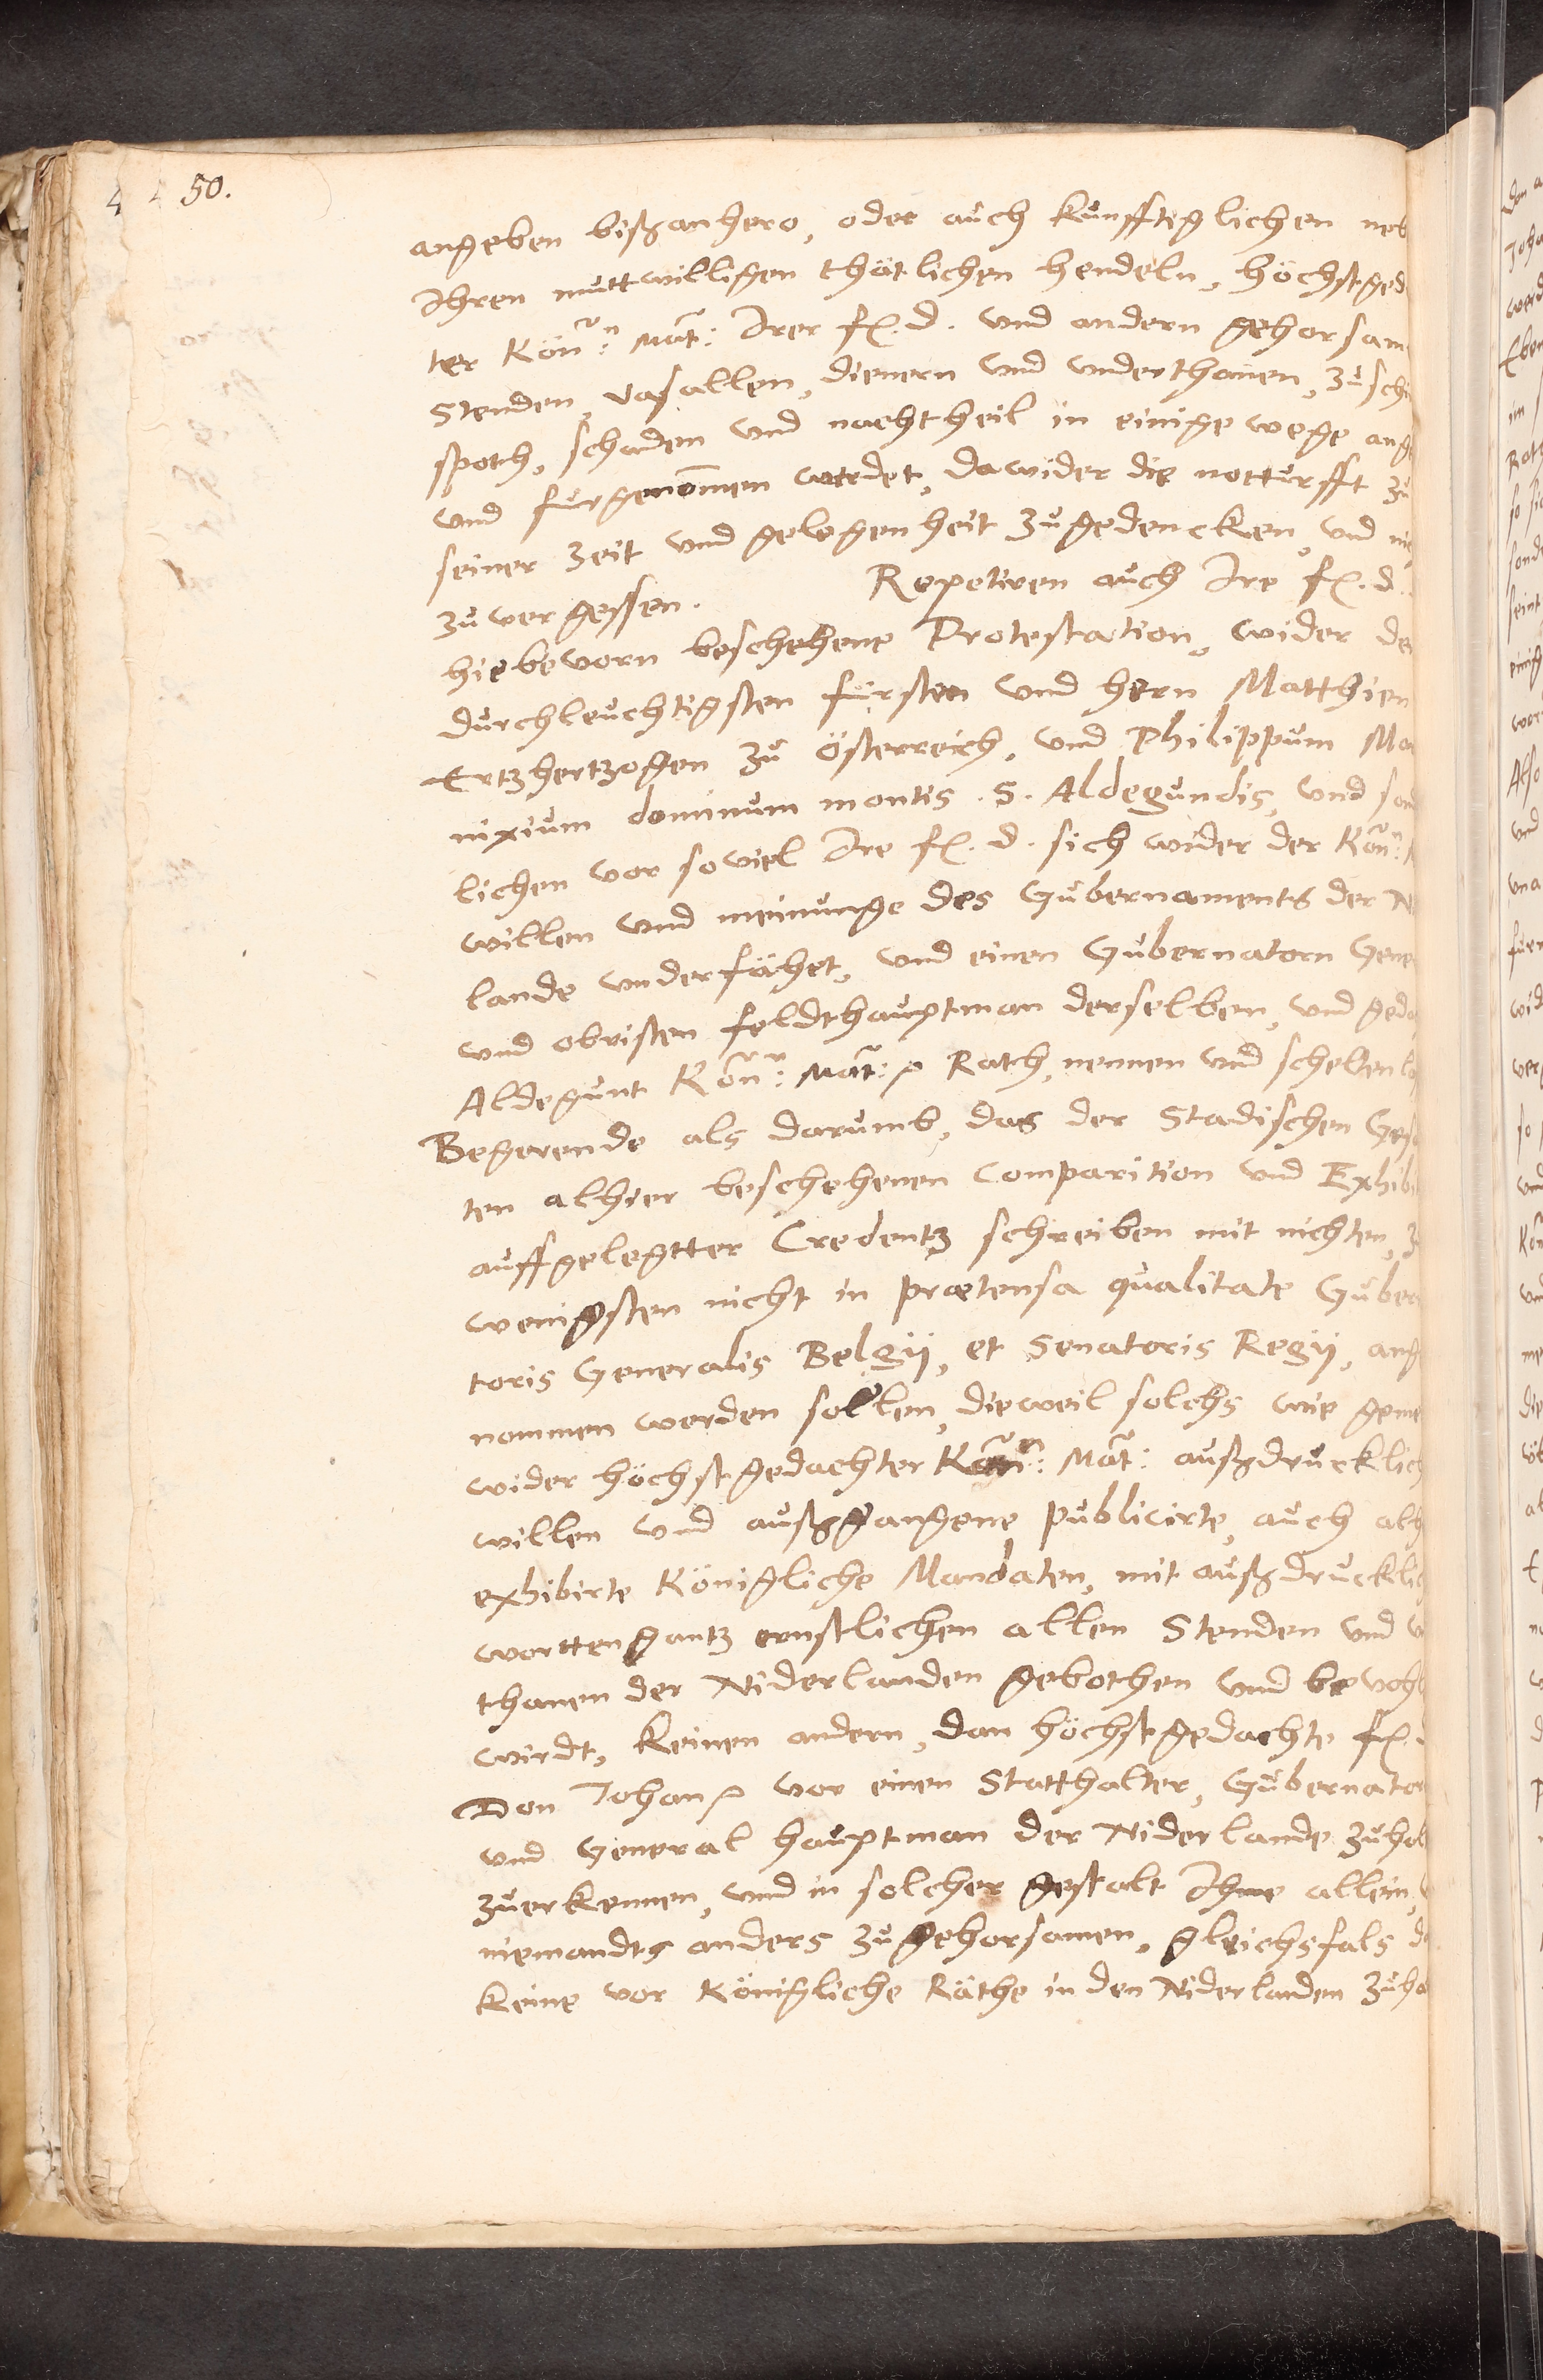 50.
angeben bißanhero, oder auch kunfftiglichen neb
Ihren muttwilligen thätlichen hendeln, höchstged
ter Kön:n Mat: Irer f. d. und andern gehorsam
Stenden, Vasallen, dienern und underthanen, zu sch
spoth, schaden und nachtheil in einige wege ang
und furgenommen werdet, dawider die notturfft zu
seiner Zeit und gelegenheit zugedencken, und ni
zuvergessen. Repetiren auch Ire f. d.
hiebevorn beschehene Protestation, wider de
durchleuchtigsten fürsten und hern Matthien
Ertzhertzogen zu Österreich, und Philippum Ma
nixium dominum montis S. Aldegundis, und son
lichen vor soviel Ire f. d. sich wider der Kön:n
willen und meinunge des Gubernaments der N
lande underfähet, und einen Gubernatorn Gene
und obristen feldthauptman derselben, und geda
Aldegunt Kön:r Mat: Rath, nennen und schelten l
Begerende als darumb, das der Stadischen Ges
ten alhier beschehenen Comparition und Exhibi
auffgelegtter Credentz schreiben mit nichten, z
wenigsten nicht in prætensa qualitate Guber
toris Generalis Belgij, et Senatoris Regij, ang
nommen werden sollen, dieweil solchs wie geme
wider höchstgedachter Kön:n Mat: außdrucklich
willen und außgangene publicirte, auch alh
exhibirte Königliche Mandaten, mit außdrucklich
wortten gantz ernstlichen allen Stenden und v
thanen der Niderlanden gebothen und bevohl
wirdt, keinen andern, dan höchstgedachte f.
Don Johan vor einen Statthalter, Gubernator
und General hauptman der Niderlande zuhal
zuerkennen, und in solcher gestalt Ihme allein,
niemandts anders zugehorsamen, gleichsfals d
keine vor Königliche Räthe in den Niderlanden zuha